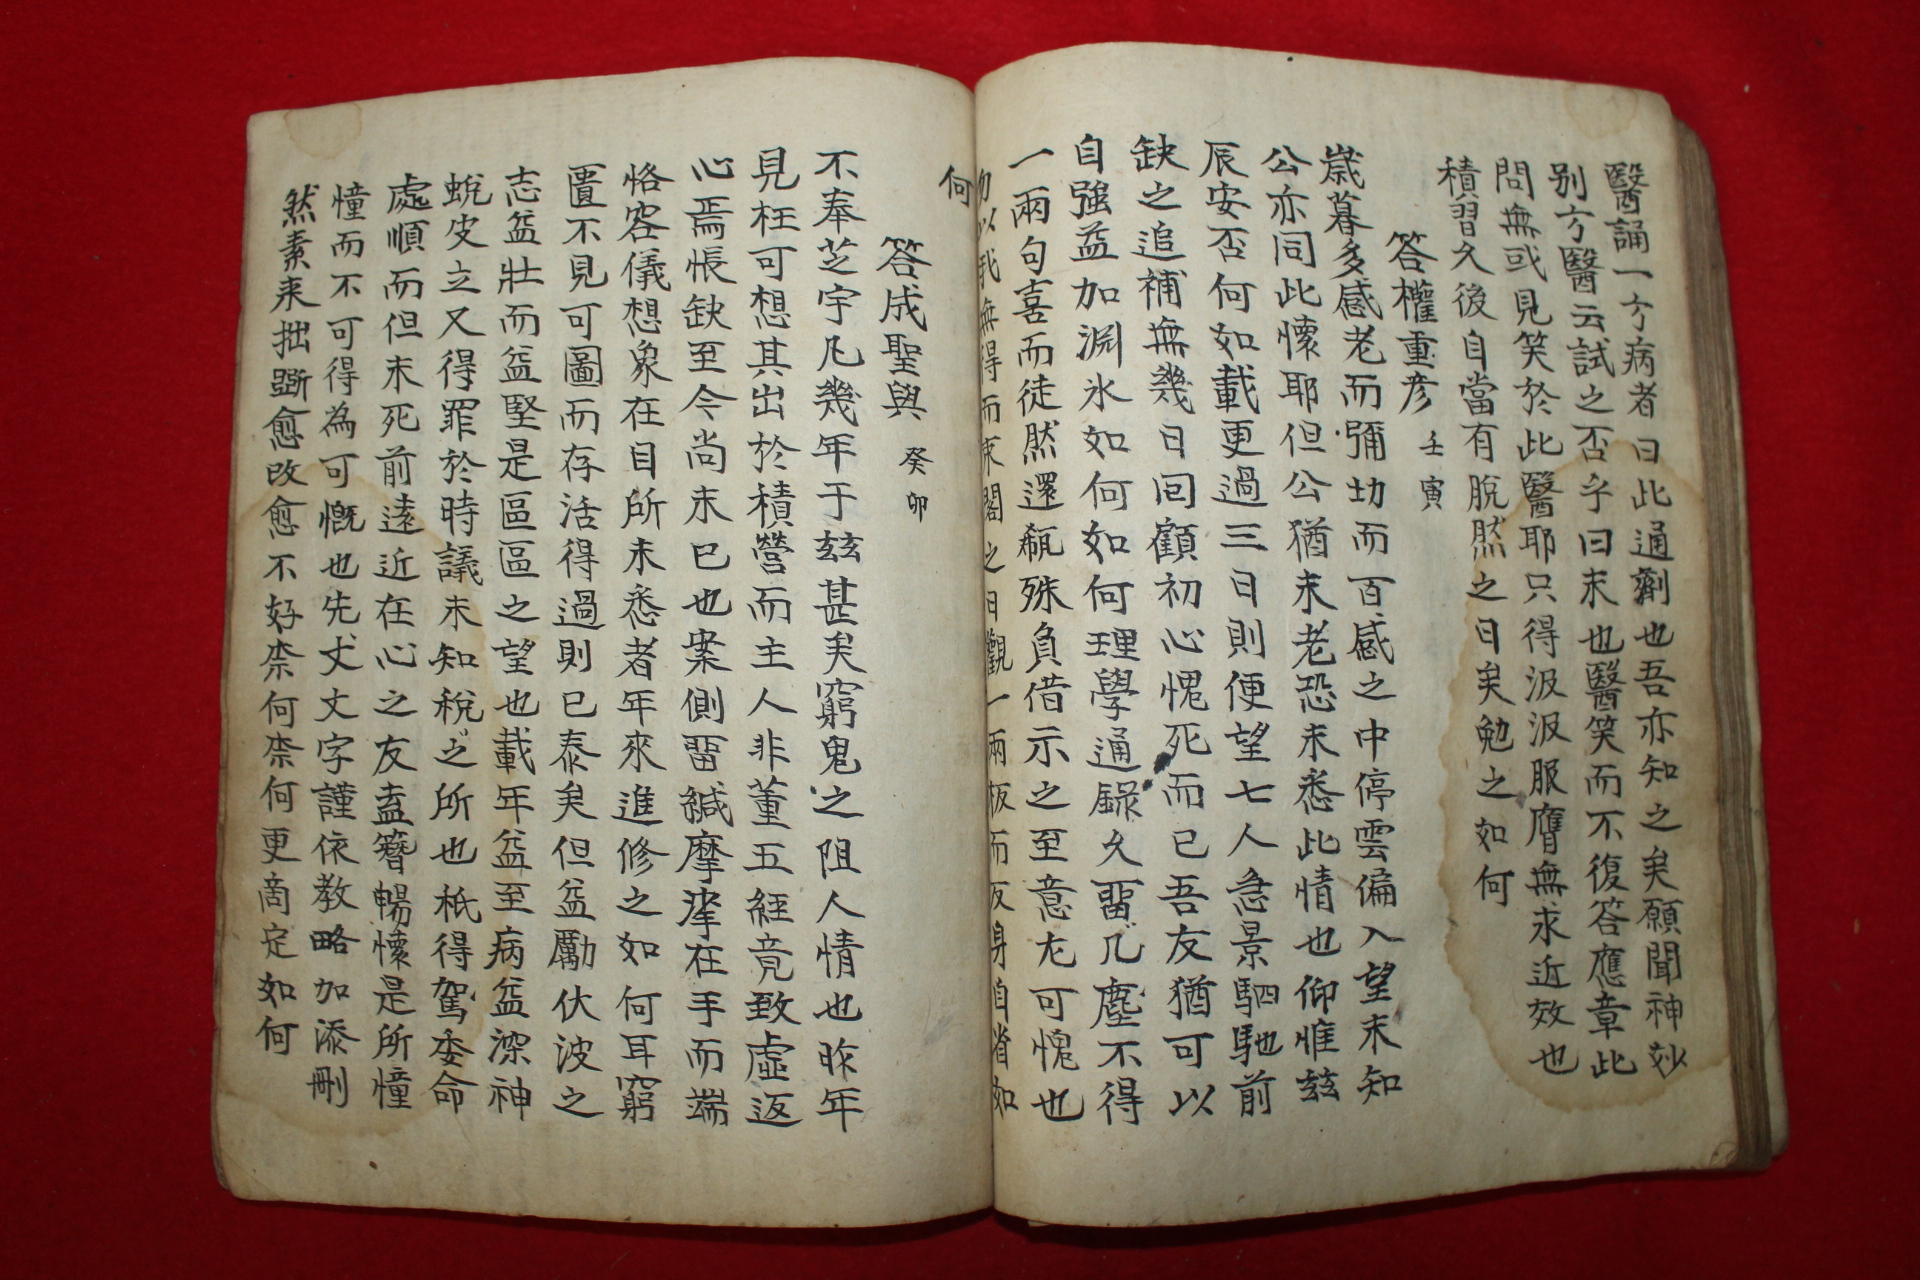 醫誦一方病者曰此通劑也吾亦知之矣願聞神妙
別方醫云試之否乎曰未也醫笑而不復答應章此
問無或見笑於此醫耶只得汲汲服膺無求近效也
積習久後自當有脫然之日矣勉之如何
答權重彥 壬寅
歲暮多感老而彌切而百感之中停雲偏入望未知
公亦同此懷耶但公猶未老恐未悉此情也仰惟玆
辰安否何如載更過三日則便望七人急景駟馳前
缺之追補無幾日回顧初心愧死而已吾友猶可以
自強益加淵氷如何如何理學通錄久留几塵不得
一兩句喜而徒然還瓻殊負借示之至意尤可愧也
勿以我無得而束閣之日觀一兩板而反身自省如
何
答成聖與 癸卯
不奉芝宇凡幾年于玆甚矣窮鬼之阻人情也昨年
見枉可想其出於積營而主人非董五經竟致虛返
心焉悵缺至今尚未已也案側留緘摩挲在手而端
恪容儀想象在目所未悉者年來進修之如何耳窮
匱不見可圖而存活得過則已泰矣但益勵伏波之
志益壯而益堅是區區之望也載年益至病益深神
蛻皮立又得罪於時議未知稅之所也秪得駕委命
處順而但未死前遠近在心之友盍簪暢懷是所憧
憧而不可得為可慨也先丈文字謹依教略加添刪
然素來拙斲愈改愈不好柰何柰何更商定如何